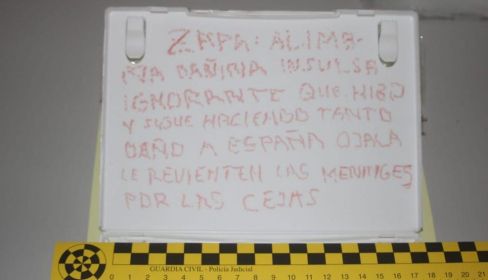 ZAPA: ALIMA-
ÑA DAÑINA INSULSA
IGNORANTE QUE HIZO
Y SIGUE HACIENDO TANTO
DAÑO A ESPAÑA OJALA
LE REVIENTEN LAS MENINGES
POR LAS CEJAS
GUARDIA CIVIL - Policía Judicial
0 1 2 3 4 5 6 7 8 9 10 11 12 13 14 15 16 17 18 19 20 21